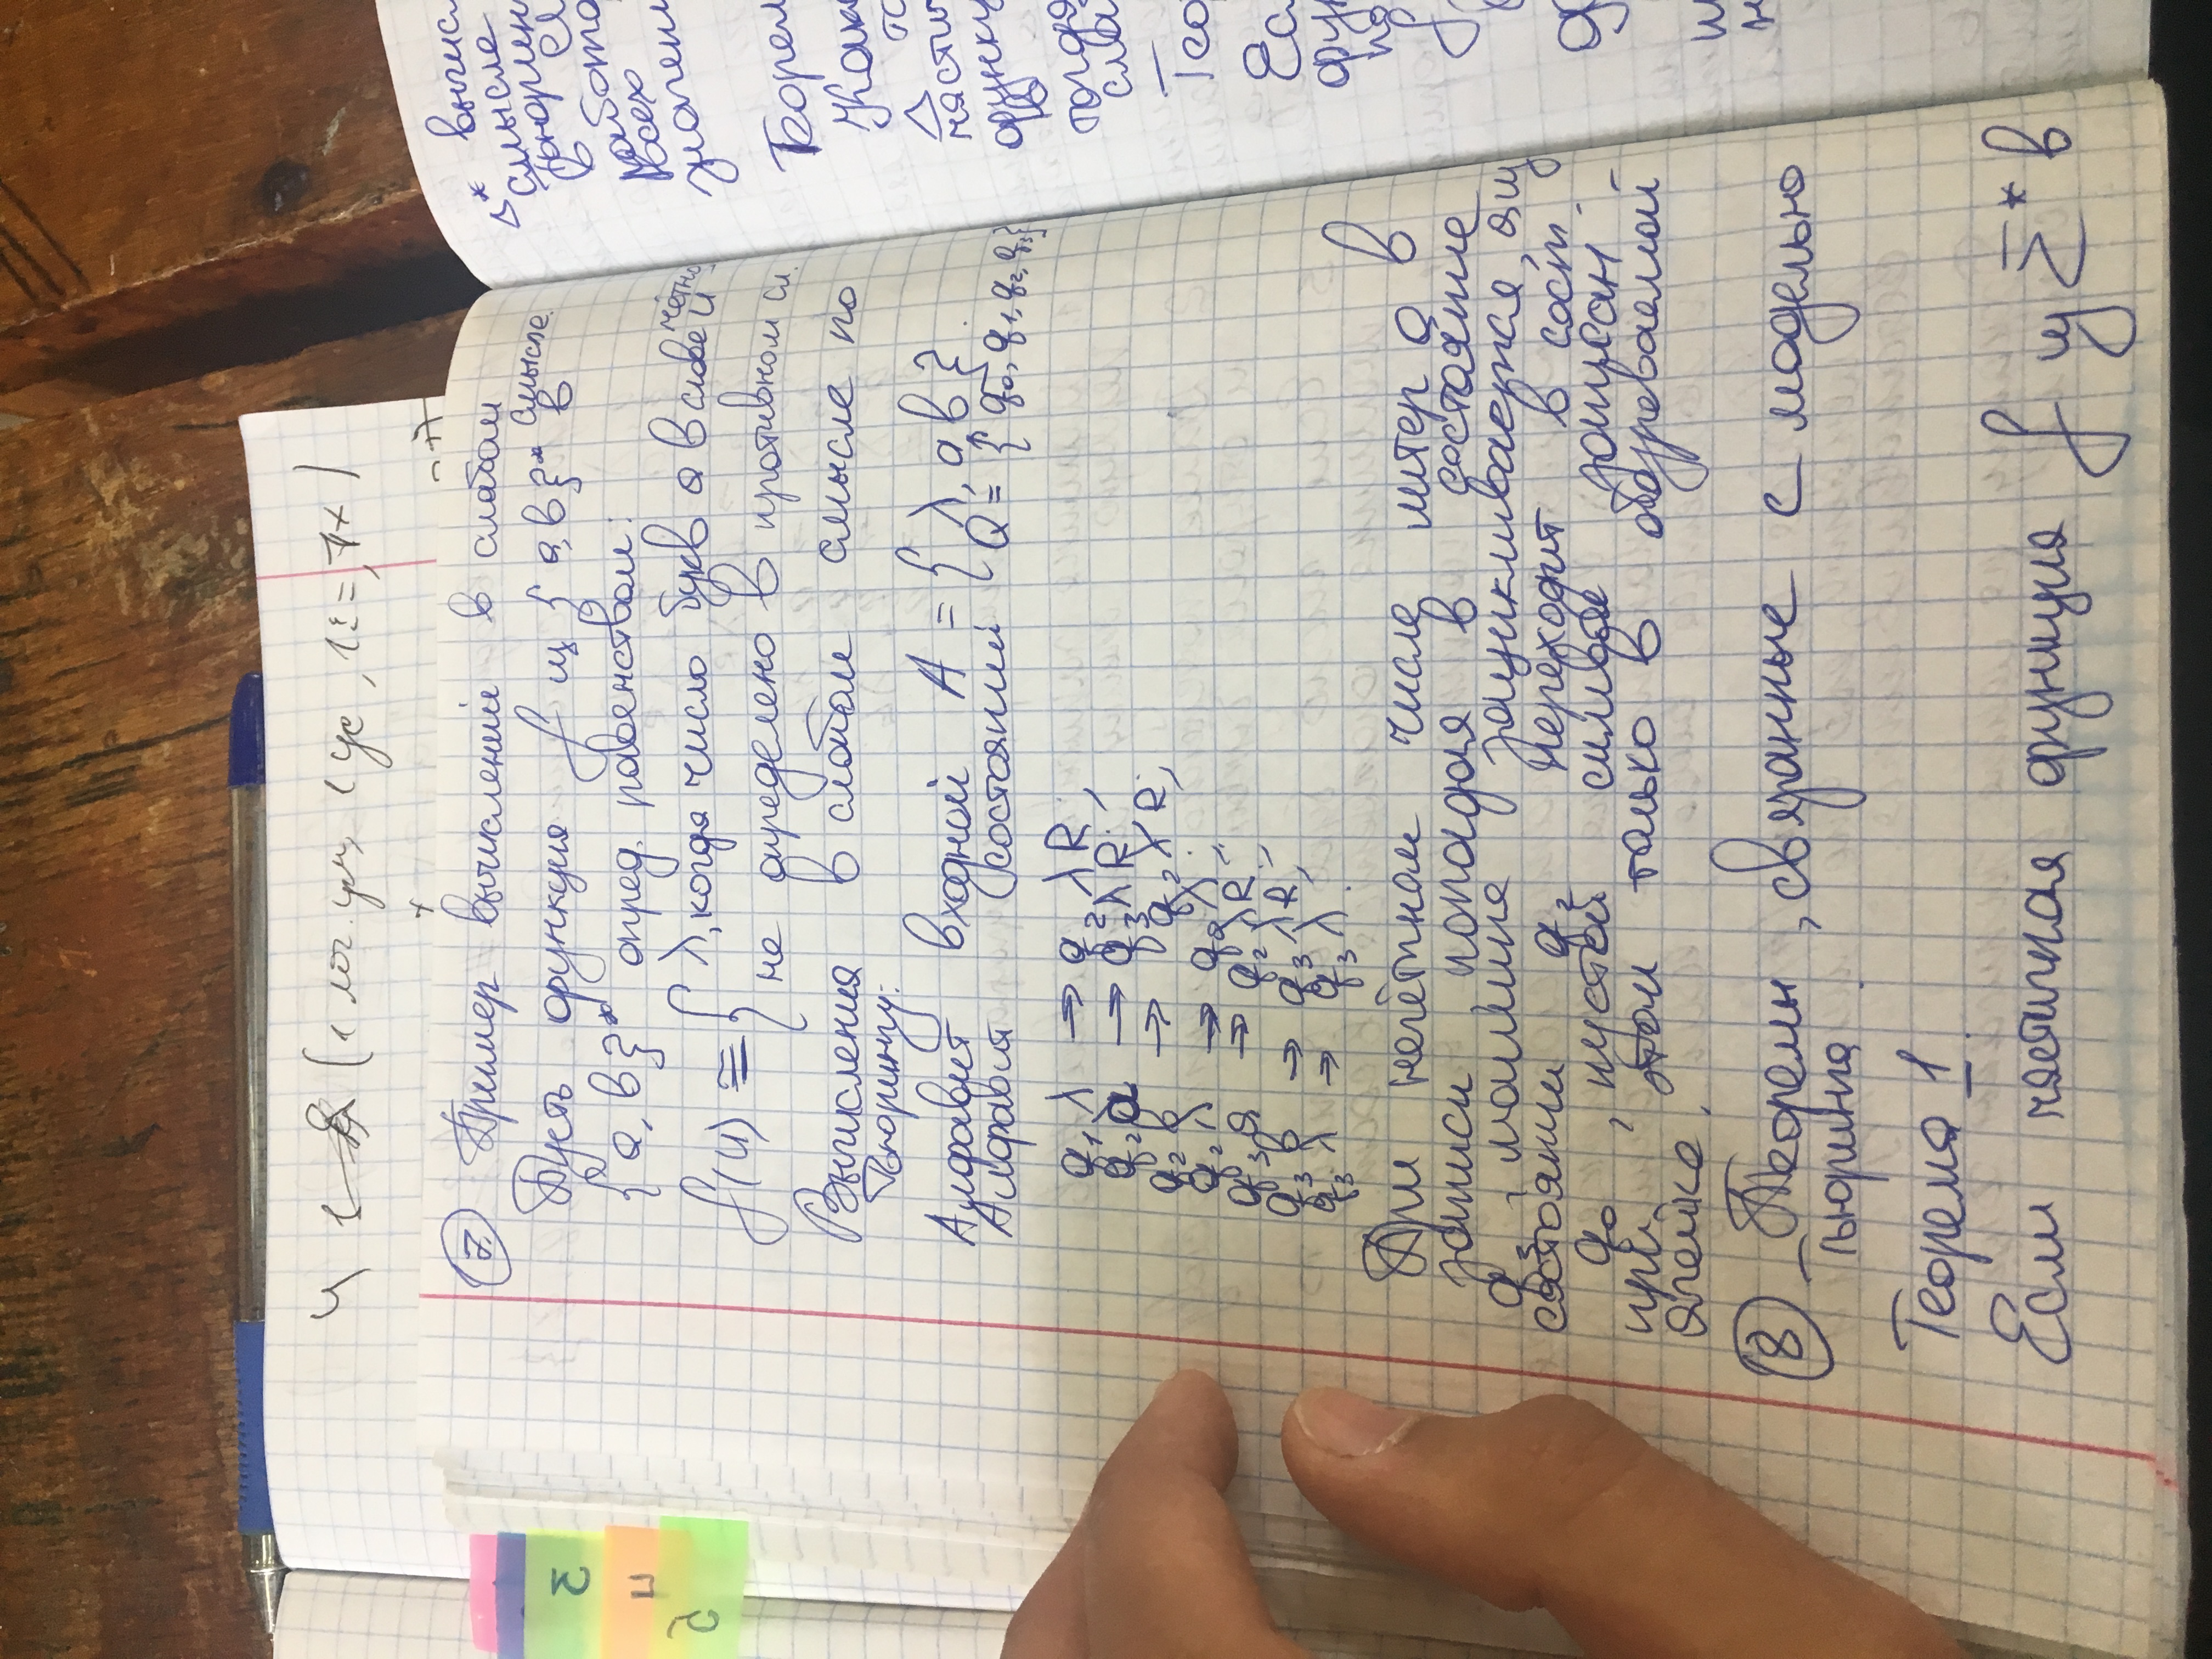 (1 лог. ум, 1 ус, 1:=, 7+)
7. Пример вычислений в слабом
смысле.
Пусть функция f из {a, b}* в
{a, b}* опред. равенством:
f(u) ≡ { λ, когда число букв a в слове u чётно,
не определено в противном сл.
Вычисления в слабом смысле по
Тьюрингу:
Алфавит входной A = { λ, a, b }.
Алфавит состояний Q = { q0, q1, q2, q3}
q1 λ → q2 λ R;
q2 a → q3 λ R;
q2 b → q2 λ R;
q2 λ → q0 λ;
q3 a → q2 λ R;
q3 b → q3 λ R;
q3 λ → q3 λ.
При нечётном числе литер a в
записи, попадая в состояние
q3, машина зацикливается, а из
состояния q2 переходит в сост.
q0, пустой символ записан
при этом только в обозреваемой
ячейке.
8 Теоремы, связанные с моделью
Тьюринга.
Теорема 1.
Если частичная функция f из Σ* в
3
4
5
* вычисл
смысле
Тьюринг
в
работа
всех
значени
Теорем
Кака
части
функци
в
тогда
слаб
Тео
Есл
фун
по
f